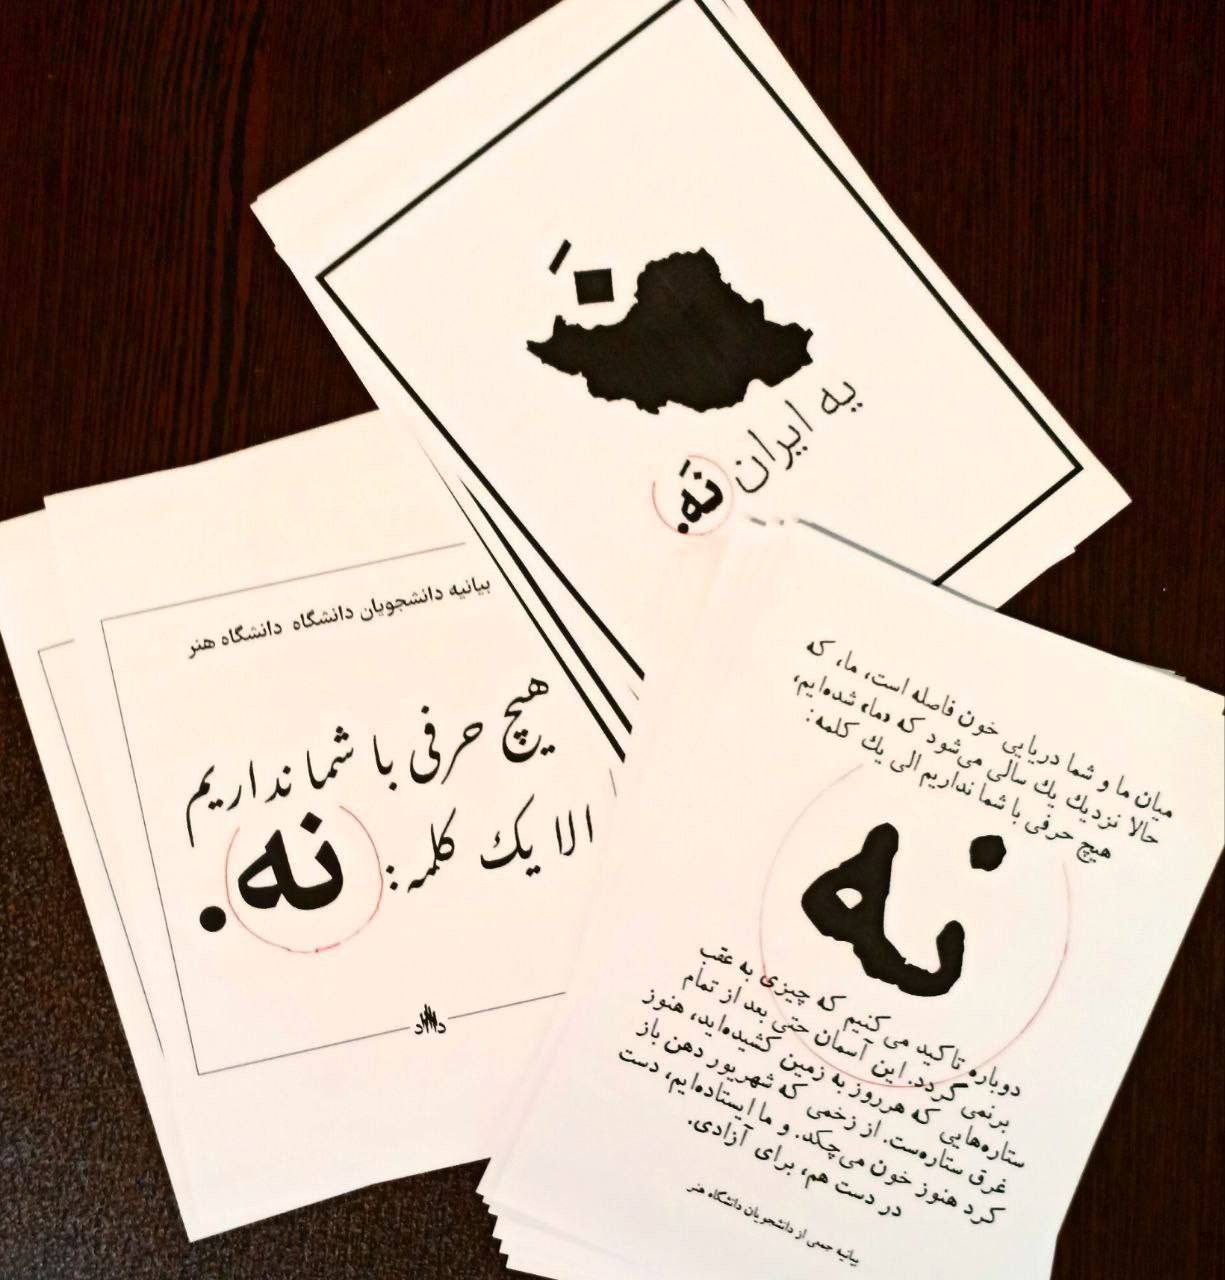 نَ
یه ایران
نَه.
بیانیه دانشجویان دانشگاه دانشگاه هنر
هیچ حرفی با شما نداریم
الا یک کلمه:
نه.
داااد
میان ما و شما دریایی خون فاصله است، ما، که
حالا نزدیك یك سالی می‌شود که «ما» شده‌ایم،
هیچ حرفی با شما نداریم الی یك کلمه:
نه
دوباره تاکید می کنیم که چیزی به عقب
برنمی گردد. این آسمان حتی بعد از تمام
ستاره‌هایی که هرروز به زمین کشیده‌اید، هنوز
غرق ستاره‌ست. از زخمی که شهریور دهن باز
کرد هنوز خون می‌چکد. و ما ایستاده‌ایم، دست
در دست هم، برای آزادی.
بیانیه جمعی از دانشجویان دانشگاه هنر